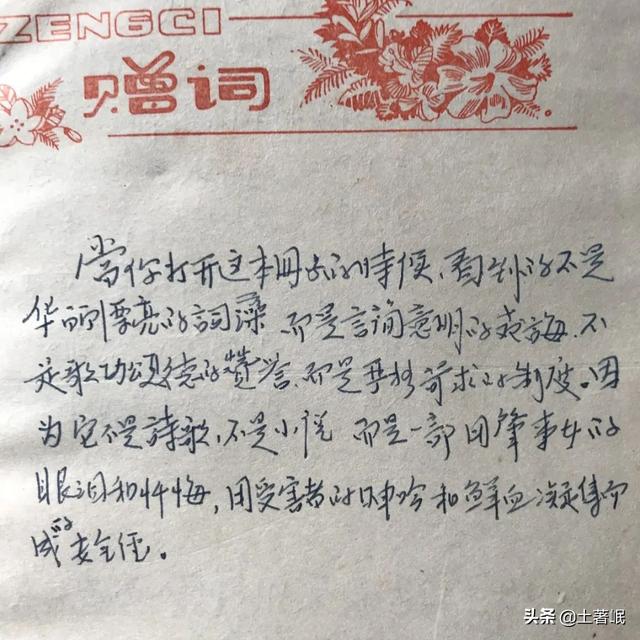 ZENGCI
赠词
當你打开这本册子的時候，看到的不是
华丽漂亮的詞藻 而是言简意明的教誨，不
是歌功頌德的赞誉，而是严格苛求的制度。因
为它不是詩歌，不是小说 而是一部用肇事女的
眼泪和忏悔，用受害者的呻吟和鲜血凝集而
成的安全经。
头条 @土著岷